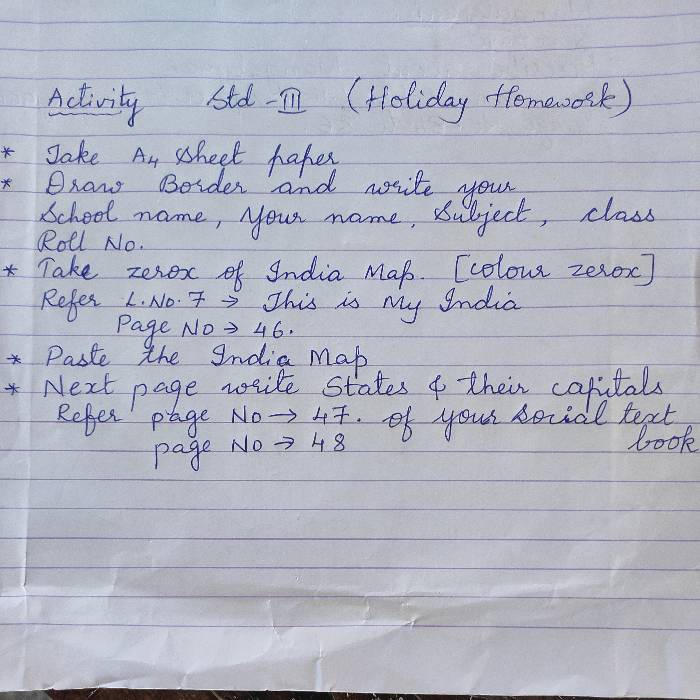 Activity Std - III (Holiday Homework)
* Take A4 Sheet paper
* Draw Border and write your
School name, Your name, Subject, class
Roll No.
* Take zerox of India Map. [colour zerox]
Refer L.No. 7 → This is My India
Page No → 46.
* Paste the India Map
* Next page write States & their capitals
Refer page No → 47. of your social text
page No → 48 book